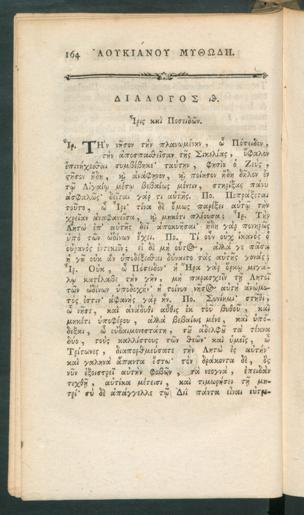 164 ΛΟΥΚΙΑΝΟΥ ΜΥΘΩΔΗ.
ΔΙΑΛΟΓΟΣ Θ.
Ἶρις καὶ Ποσειδῶν.
Ἶρ. ΤΗν νῆσον τὴν πλανωμένην, ὦ Πόσειδον,
τὴν ἀποσπασθεῖσαν τῆς Σικελίας, ὕφαλον
ἐπινήχεσθαι συμβέβηκε· ταύτην, φησὶν ὁ Ζεὺς,
στῆσον ἤδη, καὶ ἀνάφηνον, καὶ ποίησον ἤδη δῆλον ἐν
τῷ Αἰγαίῳ μέσῳ βεβαίως μένειν, στηρίξας πάνυ
ἀσφαλῶς· δεῖται γάρ τι αὐτῆς. Πο. Πεπράξεται
ταῦτα, ὦ Ἶρι· τίνα δὲ ὅμως παρέξει αὐτῷ τὴν
χρείαν ἀναφανεῖσα, καὶ μηκέτι πλέουσα; Ἶρ. Τὴν
Λητὼ ἐπ' αὐτῆς δεῖ ἀποκυῆσαι· ἤδη γὰρ πονηρῶς
ὑπὸ τῶν ὠδίνων ἔχει. Πο. Τί οὖν οὐχ ἱκανὸς ὁ
οὐρανὸς ἐντεκεῖν; εἰ δὲ μὴ οὗτος, ἀλλά γε πᾶσα
ἡ γῆ οὐκ ἂν ὑποδέξασθαι δύναιτο τὰς αὐτῆς γονάς;
Ἶρ. Οὐκ, ὦ Πόσειδον· ἡ Ἥρα γὰρ ὅρκῳ μεγά-
λῳ κατέλαβε τὴν γῆν, μὴ παρασχεῖν τῇ Λητοῖ
τῶν ὠδίνων ὑποδοχήν· ἡ τοίνυν νῆσος αὕτη ἀνώμο-
τός ἐστιν· ἀφανὴς γὰρ ἦν. Πο. Συνίημι· στῆθι,
ὦ νῆσε, καὶ ἀνάδυθι αὖθις ἐκ τοῦ βυθοῦ, καὶ
μηκέτι ὑποφέρου, ἀλλὰ βεβαίως μένε, καὶ ὑπό-
δεξαι, ὦ εὐδαιμονεστάτη, τοῦ ἀδελφοῦ τὰ τέκνα
δύο, τοὺς καλλίστους τῶν θεῶν· καὶ ὑμεῖς, ὦ
Τρίτωνες, διαπορθμεύσατε τὴν Λητὼ ἐς αὐτήν·
καὶ γαληνὰ ἅπαντα ἔστω· τὸν δράκοντα δὲ, ὃς
νῦν ἐξοιστρεῖ αὐτὴν φοβῶν, τὰ νεογνὰ, ἐπειδὰν
τεχθῇ, αὐτίκα μέτεισι, καὶ τιμωρήσει τῇ μη-
τρί· σὺ δὲ ἀπάγγελλε τῷ Διῒ πάντα εἶναι εὐτρε-